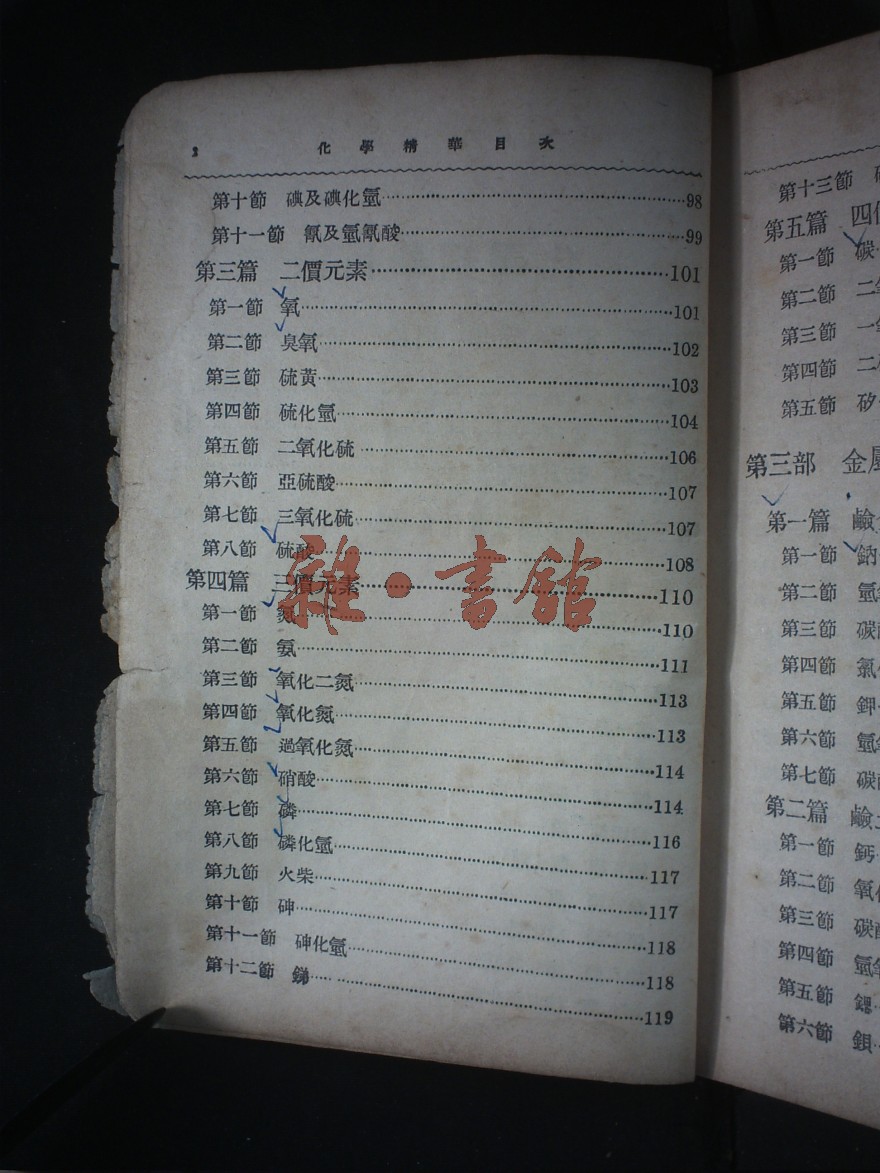 2 化學精華目次
第十節 碘及碘化氫 98
第十一節 氰及氫氰酸 99
第三篇 二價元素 101
第一節 氧 101
第二節 臭氧 102
第三節 硫黃 103
第四節 硫化氫 104
第五節 二氧化硫 106
第六節 亞硫酸 107
第七節 三氧化硫 107
第八節 硫酸 108
第四篇 三價元素 110
第一節 氮 110
第二節 氨 111
第三節 氧化二氮 113
第四節 氧化氮 113
第五節 過氧化氮 114
第六節 硝酸 114
第七節 磷 116
第八節 磷化氫 117
第九節 火柴 117
第十節 砷 118
第十一節 砷化氫 118
第十二節 銻 119
雜·書館
第十三節
第五篇 四
第一節 碳
第二節 二
第三節 一
第四節 二
第五節 矽
第三部 金
第一篇 鹼
第一節 鈉
第二節 氫
第三節 碳
第四節 氯
第五節 鉀
第六節 氫
第七節 碳
第二篇 鹼
第一節 鈣
第二節 氧
第三節 碳
第四節 氫
第五節 鍶
第六節 鋇